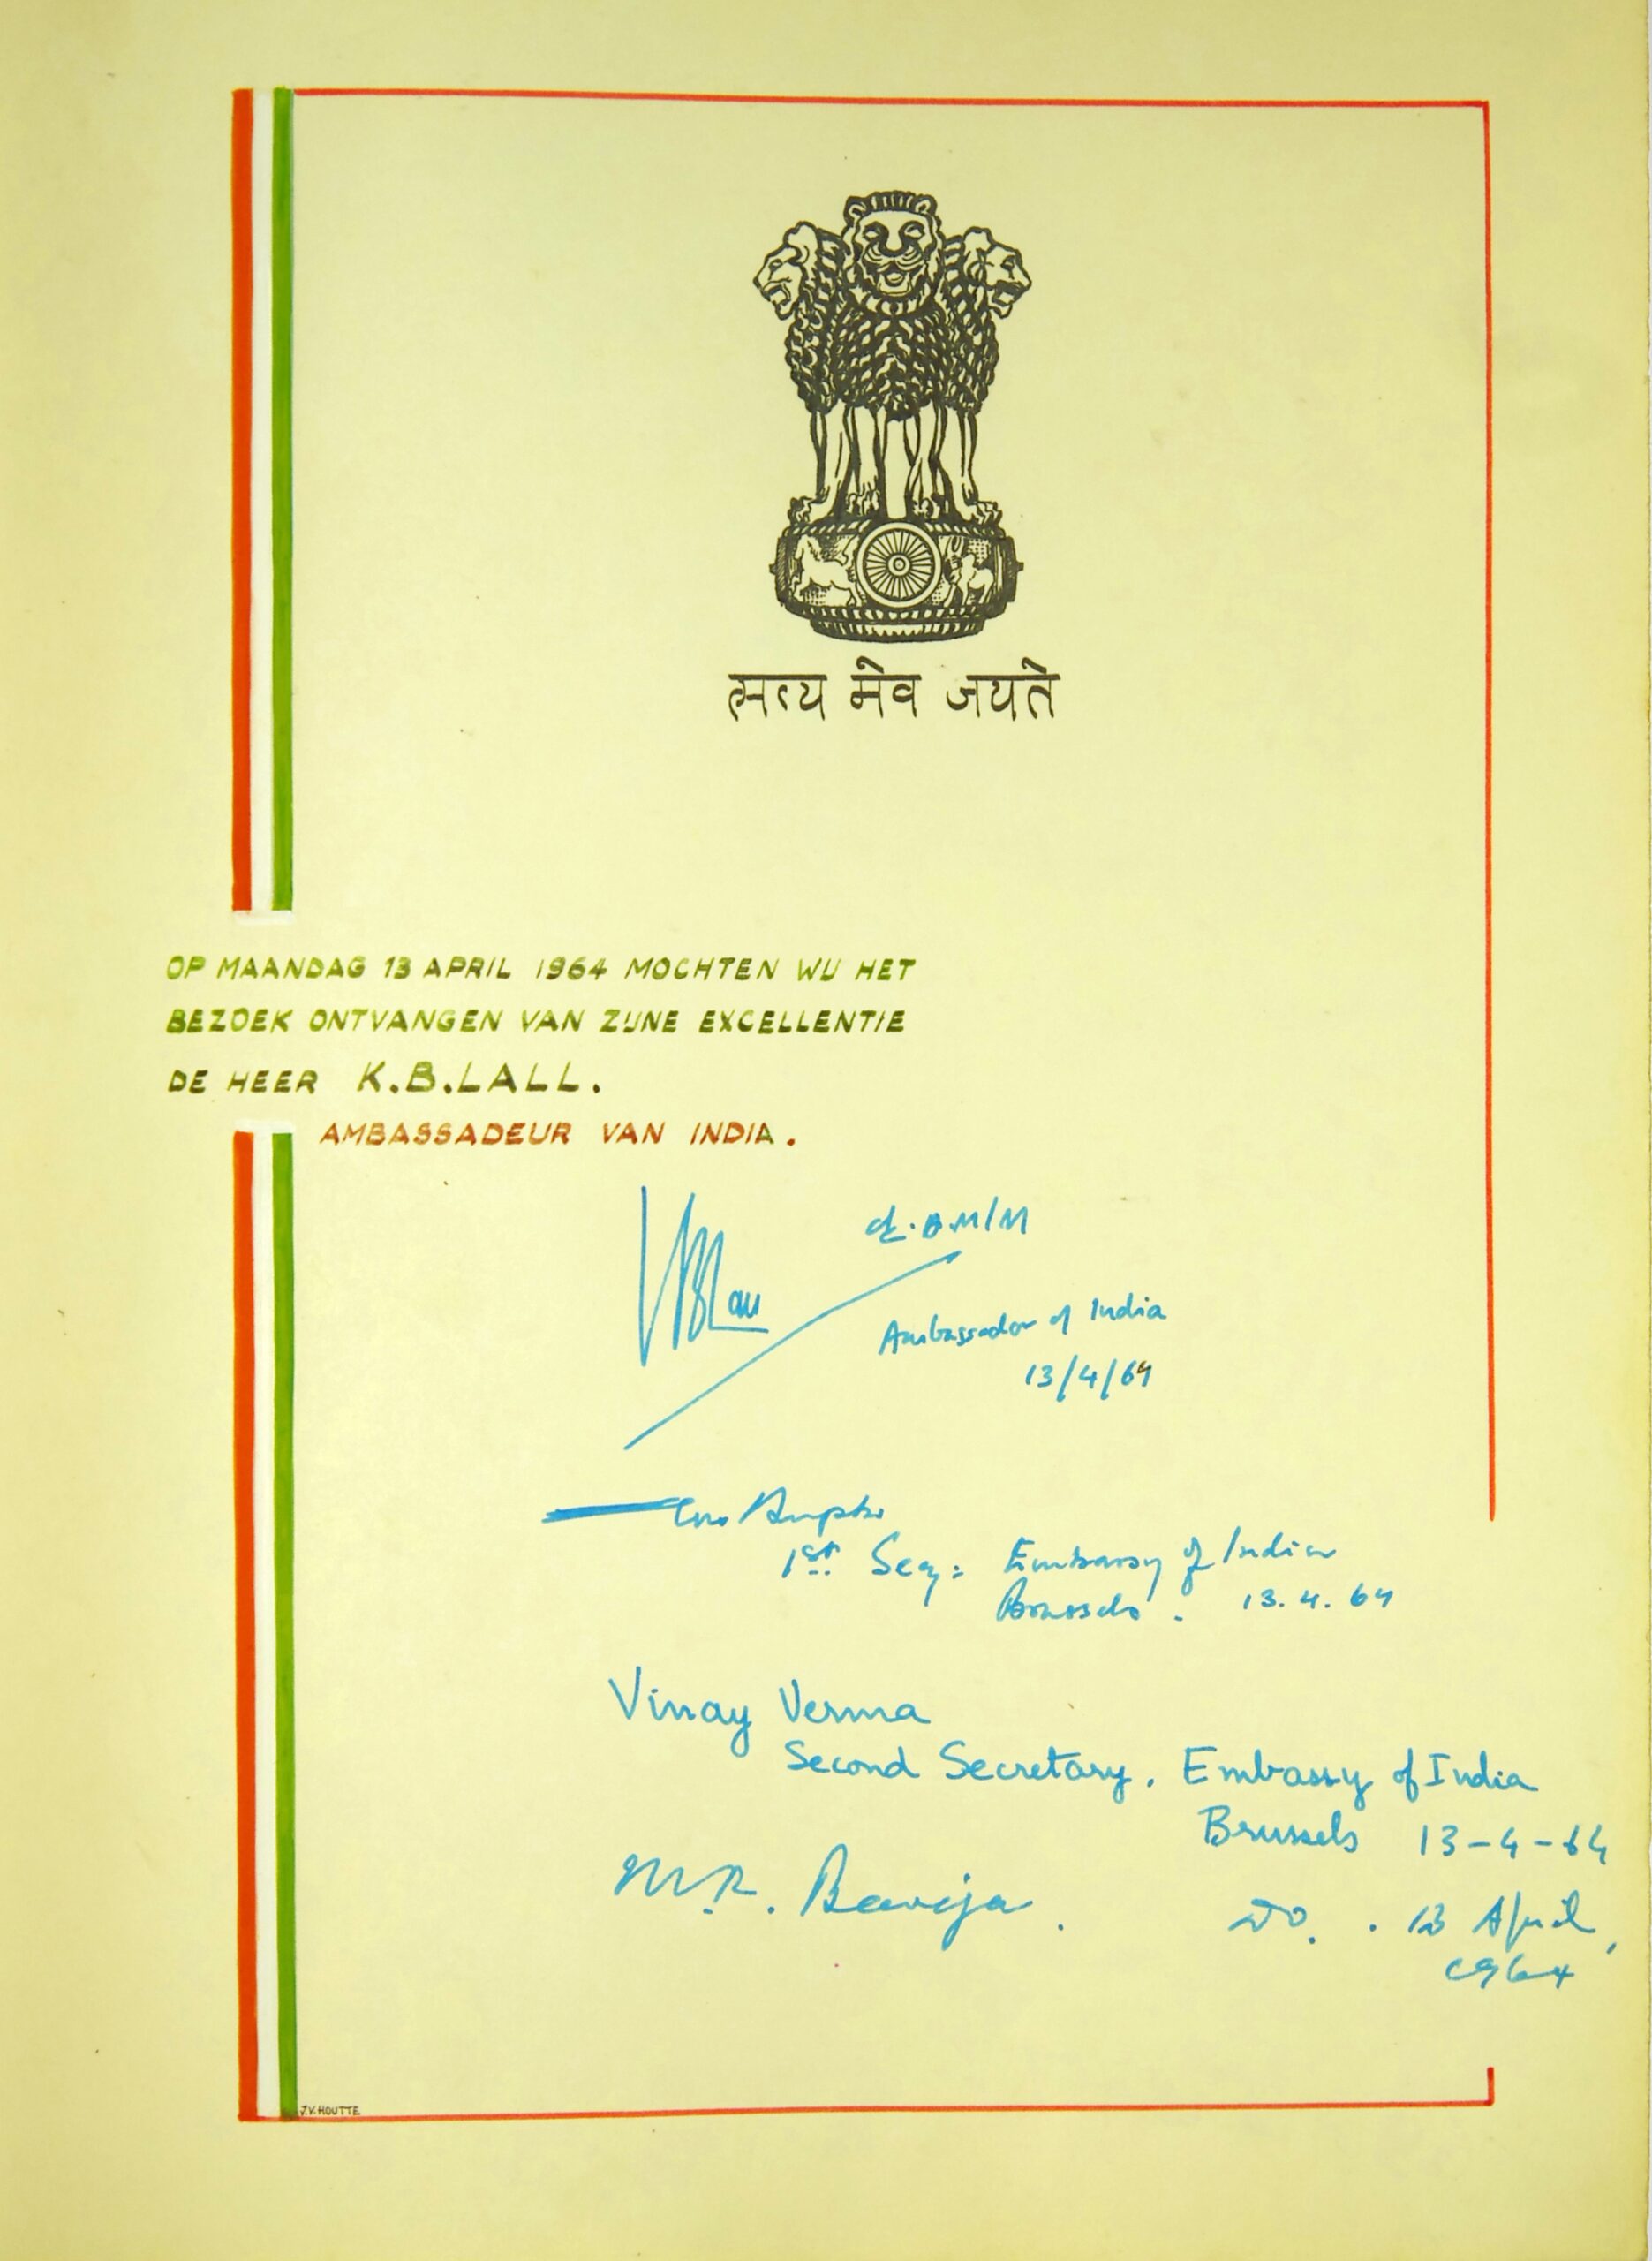 सत्य मेव जयते
OP MAANDAG 13 APRIL 1964 MOCHTEN WIJ HET
BEZOEK ONTVANGEN VAN ZIJNE EXCELLENTIE
DE HEER K.B.LALL.
AMBASSADEUR VAN INDIA.
Ambassador of India
13/4/64
1st Secy: Embassy of India
Brussels. 13.4.64
Vinay Verma
Second Secretary, Embassy of India
Brussels 13-4-64
M.R. Baveja. Do. . 13 April,
1964
J.V.HOUTTE